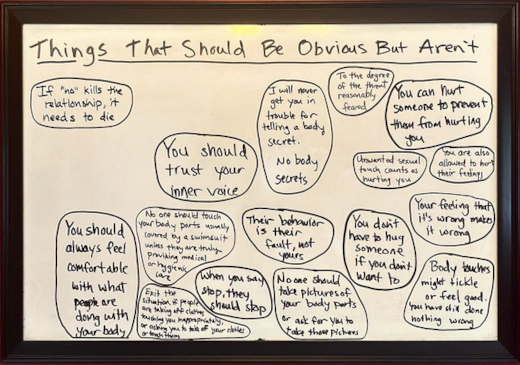 Things That Should Be Obvious But Aren't
If "no" kills the
relationship, it
needs to die
I will never
get you in
trouble for
telling a body
secret.
No body
secrets
To the degree
of the threat
reasonably
feared
You can hurt
someone to prevent
them from hurting
you
You should
trust your
inner voice
Unwanted sexual
touch counts as
hurting you
You are also
allowed to hurt
their feelings
You should
always feel
comfortable
with what
people are
doing with
your body
No one should touch
your body parts usually
covered by a swimsuit
unless they are truly
providing medical
or hygienic
care
Their behavior
is their
fault, not
yours
You don't
have to hug
someone
if you don't
want to
Your feeling that
it's wrong makes
it wrong
Exit the
situation if people
are taking off clothes
touching you inappropriately,
or asking you to take off your clothes
or touch them
When you say
stop, they
should stop
No one should
take pictures of
your body parts
or ask for you to
take those pictures
Body touches
might tickle
or feel good.
You have still done
nothing wrong